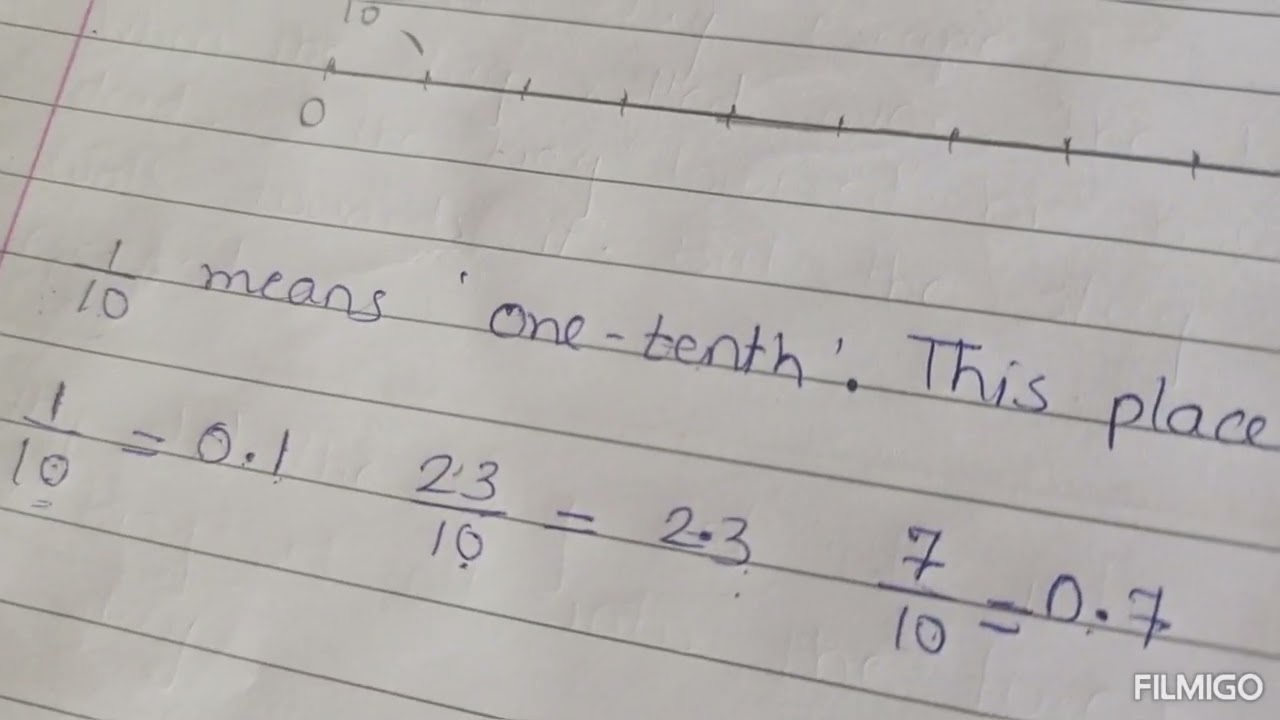 10
0
1/10 means 'one-tenth'. This place
1/10 = 0.1 23/10 = 2.3 7/10 = 0.7
FILMIGO